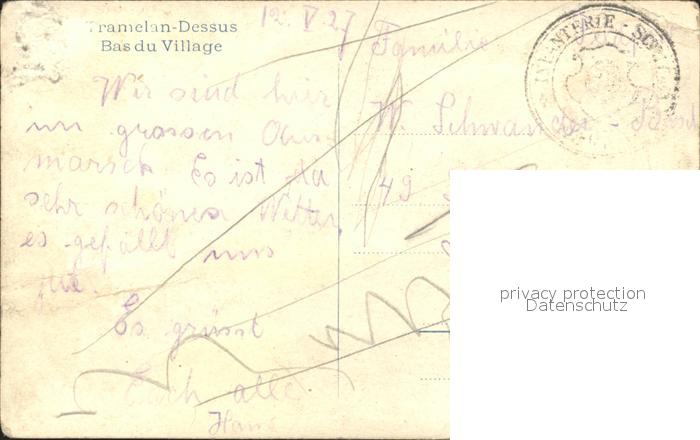 Tramelan-Dessus
Bas du Village
12. V 27
Familie
W. Schwander -
49
INFANTERIE -
Wir sind hier
im grossen
marsch. Es ist da
sehr schönes Wetter,
es gefällt uns
Es grüsst
Euch alle
Hans
privacy protection
Datenschutz